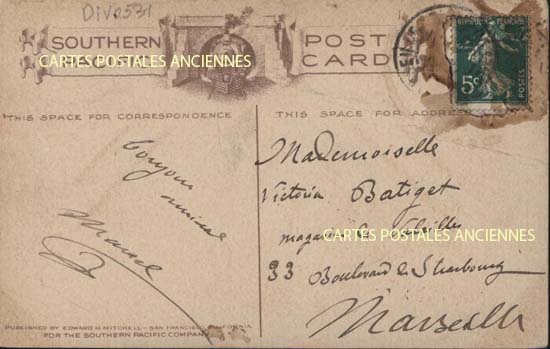 DIV0531
SOUTHERN
PACIFIC
POST
CARD
CARTES POSTALES ANCIENNES
REPUBLIQUE FRANÇAISE
5c
POSTES
THIS SPACE FOR CORRESPONDENCE
THIS SPACE FOR ADDRESS
bonjour
amical
Marcel
Mademoiselle
Victoria Batiget
magasin
CARTES POSTALES ANCIENNES
33 Boulevard de Strasbourg
Marseille
PUBLISHED BY EDWARD H. MITCHELL - SAN FRANCISCO, CALIFORNIA
FOR THE SOUTHERN PACIFIC COMPANY